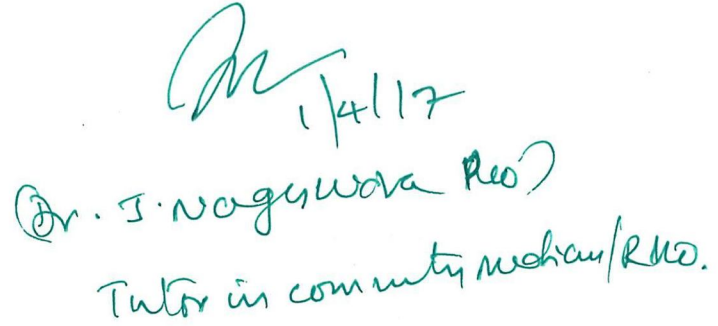 1/4/17
(Dr. J. Nageswara Rao)
Tutor in community medicine/RMO.